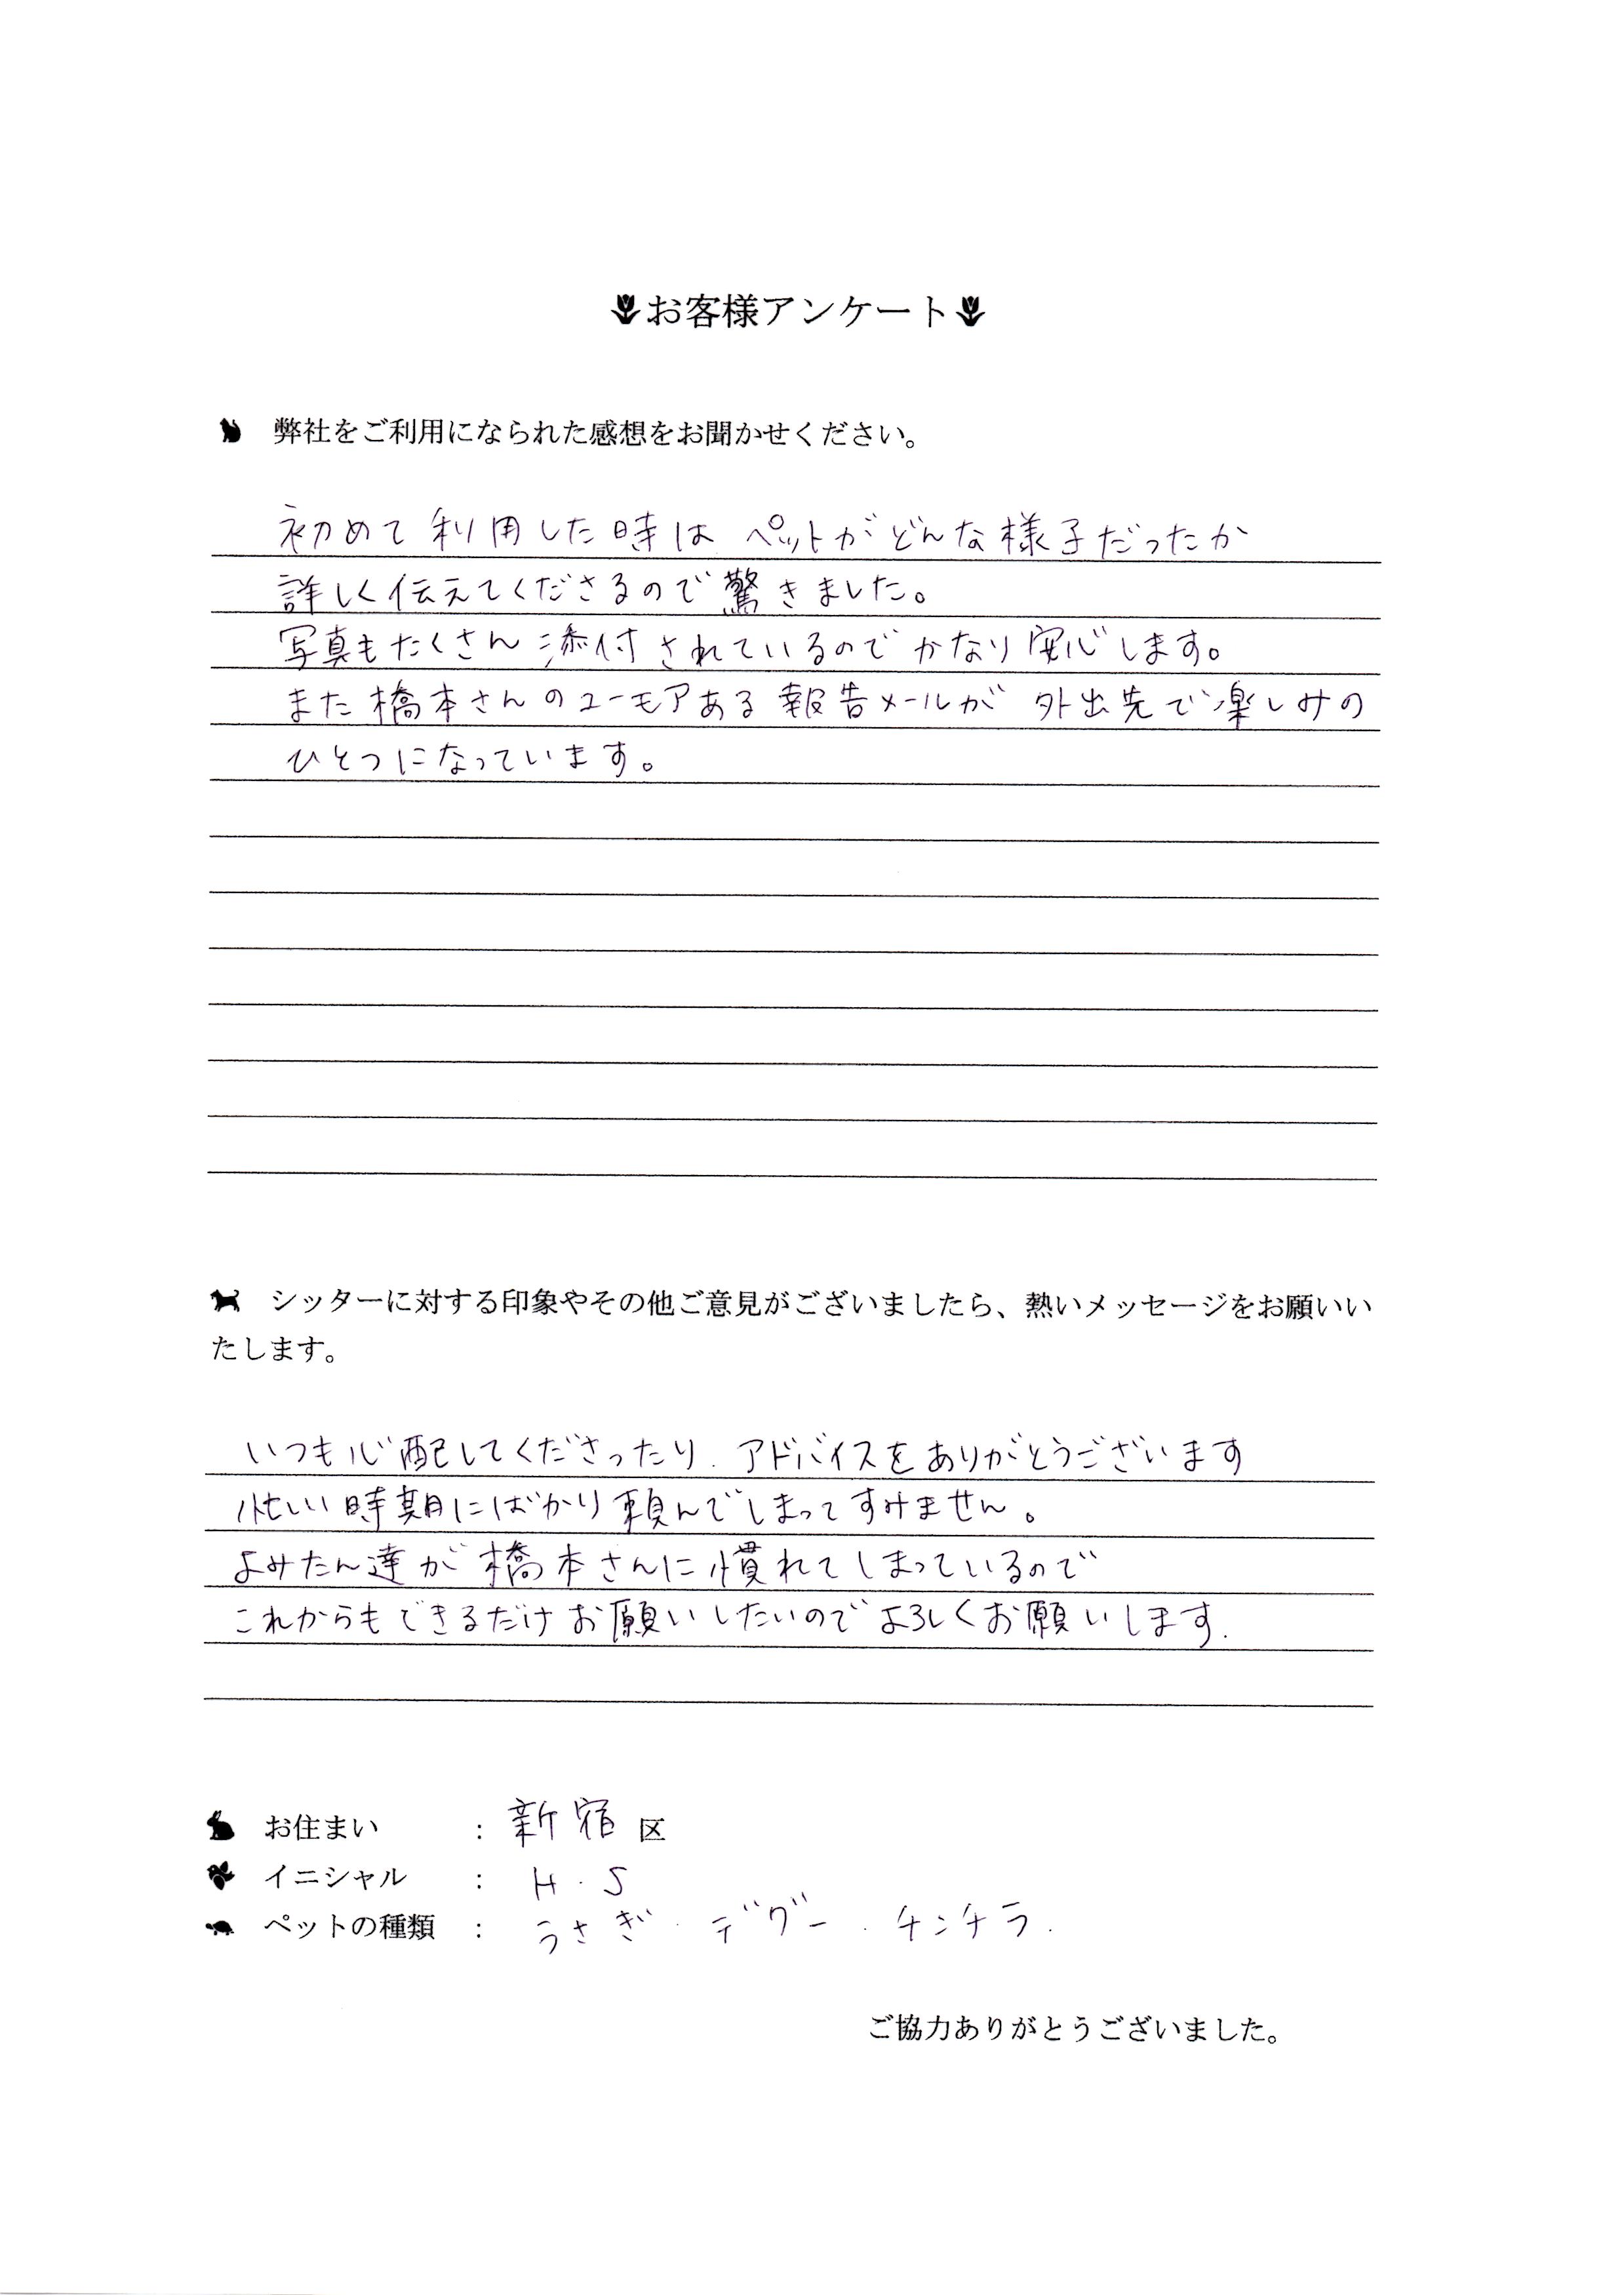 お客様アンケート
弊社をご利用になられた感想をお聞かせください。
初めて利用した時は ペットがどんな様子だったか
詳しく伝えてくださるので驚きました。
写真もたくさん添付されているのでかなり安心します。
また橋本さんのユーモアある報告メールが 外出先で楽しみの
ひとつになっています。
シッターに対する印象やその他ご意見がございましたら、熱いメッセージをお願いい
たします。
いつも心配してくださったり.アドバイスをありがとうございます
忙しい時期にばかり頼んでしまってすみません。
よみたん達が橋本さんに慣れてしまっているので
これからもできるだけお願いしたいのでよろしくお願いします.
お住まい : 新宿区
イニシャル : H・S
ペットの種類 : うさぎ・デグー・チンチラ.
ご協力ありがとうございました。